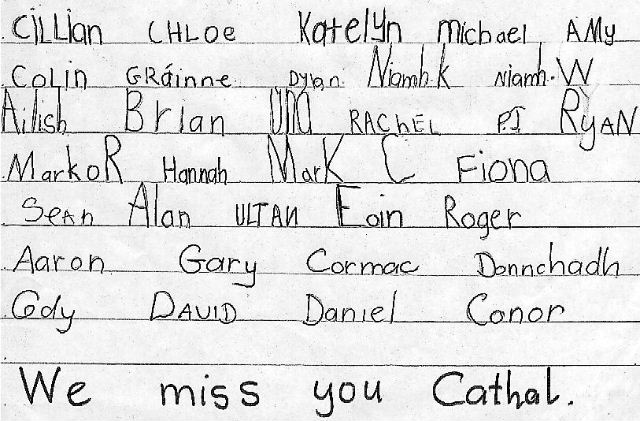 CiLLian CHLOe Katelyn michael AMy
COLIN GRáinne Dylan Niamh.K Niamh.W
Ailish Brian UNA RACHEL PJ RyAN
MarkoR Hannah MarK C Fiona
SeAn Alan ULTAN Eoin Roger
Aaron Gary Cormac Donnchadh
Cody DAVID Daniel Conor
We miss you Cathal.